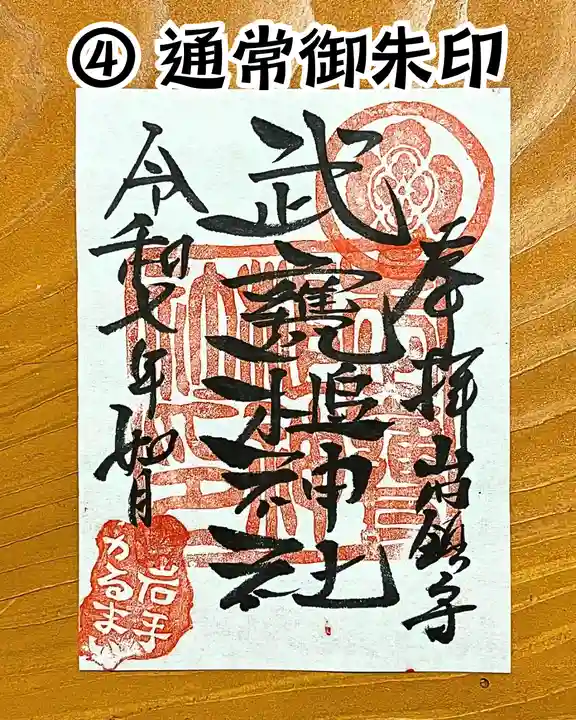 ④ 通常御朱印
奉拝
鎮守
武甕槌神社
令和七年如月
岩手
かるま